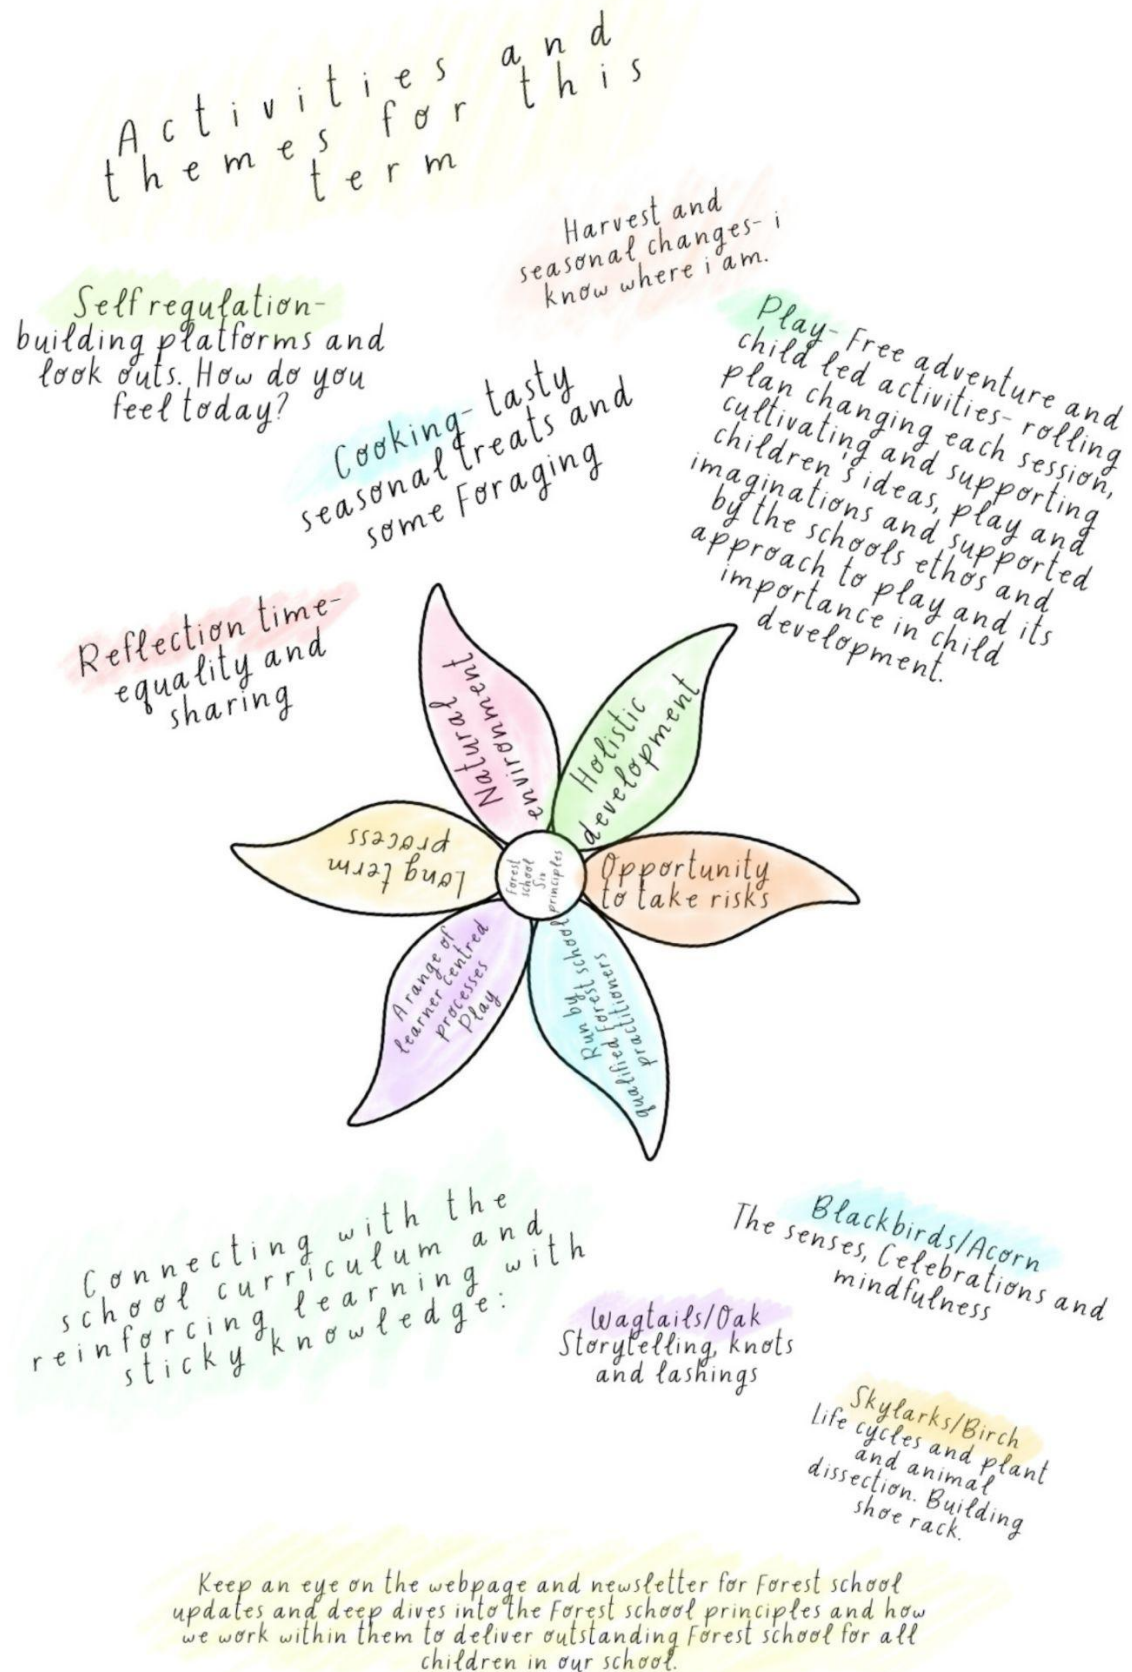 Activities and
themes for this
term
Harvest and
seasonal changes- i
know where i am.
Self regulation-
building platforms and
look outs. How do you
feel today?
Play- Free adventure and
child led activities- rolling
plan changing each session,
cultivating and supporting
children's ideas, play and
imaginations and supported
by the schools ethos and
approach to play and its
importance in child
development.
Cooking- tasty
seasonal treats and
some Foraging
Reflection time-
equality and
sharing
Natural
environment
Holistic
development
Opportunity
to take risks
Run by
qualified Forest school
practitioners
A range of
learner centred
processes
Play
Long term
process
Forest
school
Six
principles
Connecting with the
school curriculum and
reinforcing learning with
sticky knowledge:
Blackbirds/Acorn
The senses, Celebrations and
mindfulness
Wagtails/Oak
Storytelling, knots
and lashings
Skylarks/Birch
Life cycles and plant
and animal
dissection. Building
shoe rack.
Keep an eye on the webpage and newsletter for Forest school
updates and deep dives into the Forest school principles and how
we work within them to deliver outstanding Forest school for all
children in our school.